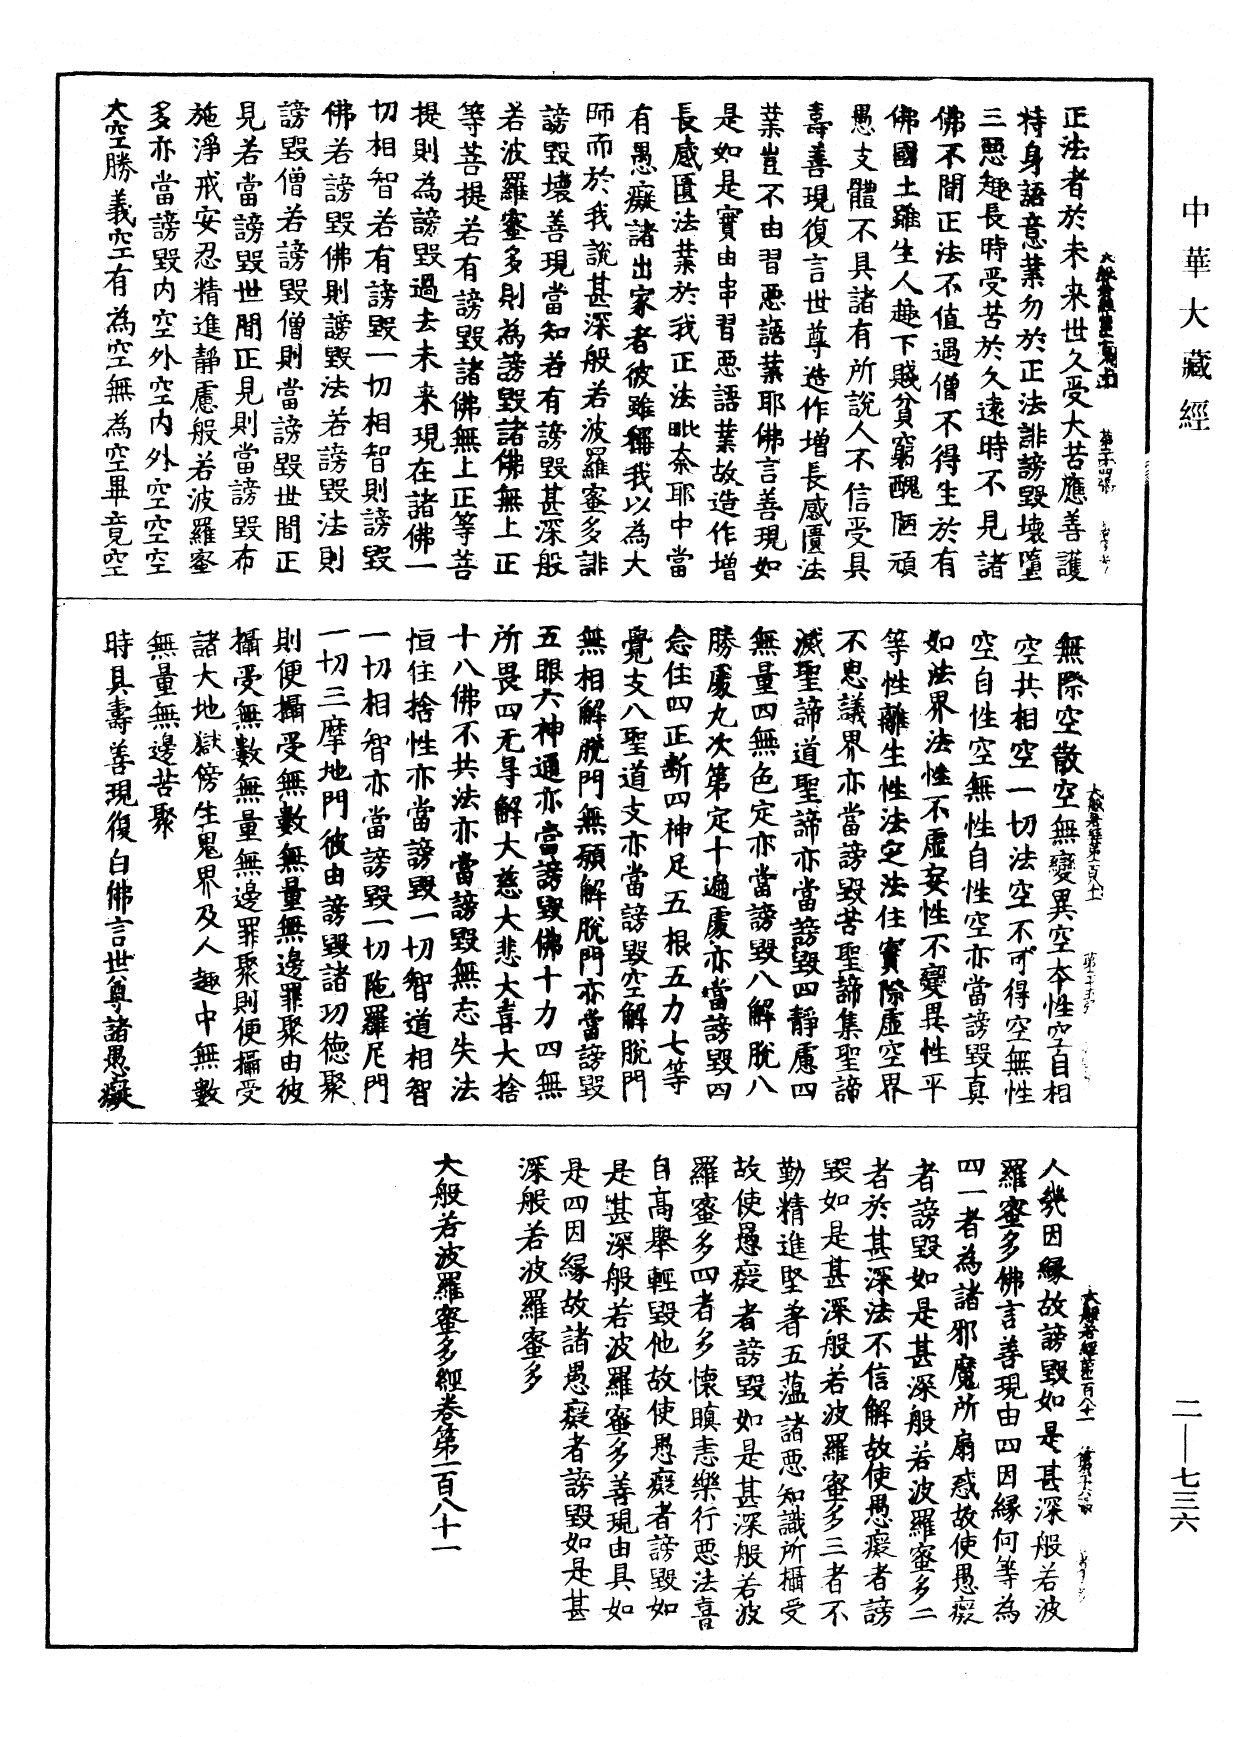 中華大藏經
二—七三六
正法者於未来世久受大苦應善護
持身語意業勿於正法誹謗毀壞墮
三惡趣長時受苦於久遠時不見諸
佛不聞正法不值遇僧不得生於有
佛國土雖生人趣下賤貧窮醜陋頑
愚支體不具諸有所說人不信受具
壽善現復言世尊造作增長感匱法
業豈不由習惡語業耶佛言善現如
是如是實由串習惡語業故造作增
長感匱法業於我正法毗奈耶中當
有愚癡諸出家者彼雖稱我以為大
師而於我說甚深般若波羅蜜多誹
謗毀壞善現當知若有謗毀甚深般
若波羅蜜多則為謗毀諸佛無上正
等菩提若有謗毀諸佛無上正等菩
提則為謗毀過去未来現在諸佛一
切相智若有謗毀一切相智則謗毀
佛若謗毀佛則謗毀法若謗毀法則
謗毀僧若謗毀僧則當謗毀世間正
見若當謗毀世間正見則當謗毀布
施淨戒安忍精進靜慮般若波羅蜜
多亦當謗毀内空外空内外空空空
大空勝義空有為空無為空畢竟空
大般若經第一百八十一
無際空散空無變異空本性空自相
空共相空一切法空不可得空無性
空自性空無性自性空亦當謗毀真
如法界法性不虛妄性不變異性平
等性離生性法定法住實際虛空界
不思議界亦當謗毀苦聖諦集聖諦
滅聖諦道聖諦亦當謗毀四靜慮四
無量四無色定亦當謗毀八解脫八
勝處九次第定十遍處亦當謗毀四
念住四正斷四神足五根五力七等
覺支八聖道支亦當謗毀空解脫門
無相解脫門無願解脫門亦當謗毀
五眼六神通亦當謗毀佛十力四無
所畏四无㝵解大慈大悲大喜大捨
十八佛不共法亦當謗毀無忘失法
恒住捨性亦當謗毀一切智道相智
一切相智亦當謗毀一切陁羅尼門
一切三摩地門彼由謗毀諸功德聚
則便攝受無數無量無邊罪聚由彼
攝受無數無量無邊罪聚則便攝受
諸大地獄傍生鬼界及人趣中無數
無量無邊苦聚
時具壽善現復白佛言世尊諸愚癡
大般若經第一百八十一
人幾因緣故謗毀如是甚深般若波
羅蜜多佛言善現由四因緣何等為
四一者為諸邪魔所扇惑故使愚癡
者謗毀如是甚深般若波羅蜜多二
者於甚深法不信解故使愚癡者謗
毀如是甚深般若波羅蜜多三者不
勤精進堅著五蘊諸惡知識所攝受
故使愚癡者謗毀如是甚深般若波
羅蜜多四者多懷瞋恚樂行惡法喜
自高舉輕毀他故使愚癡者謗毀如
是甚深般若波羅蜜多善現由具如
是四因緣故諸愚癡者謗毀如是甚
深般若波羅蜜多
大般若波羅蜜多經卷第一百八十一